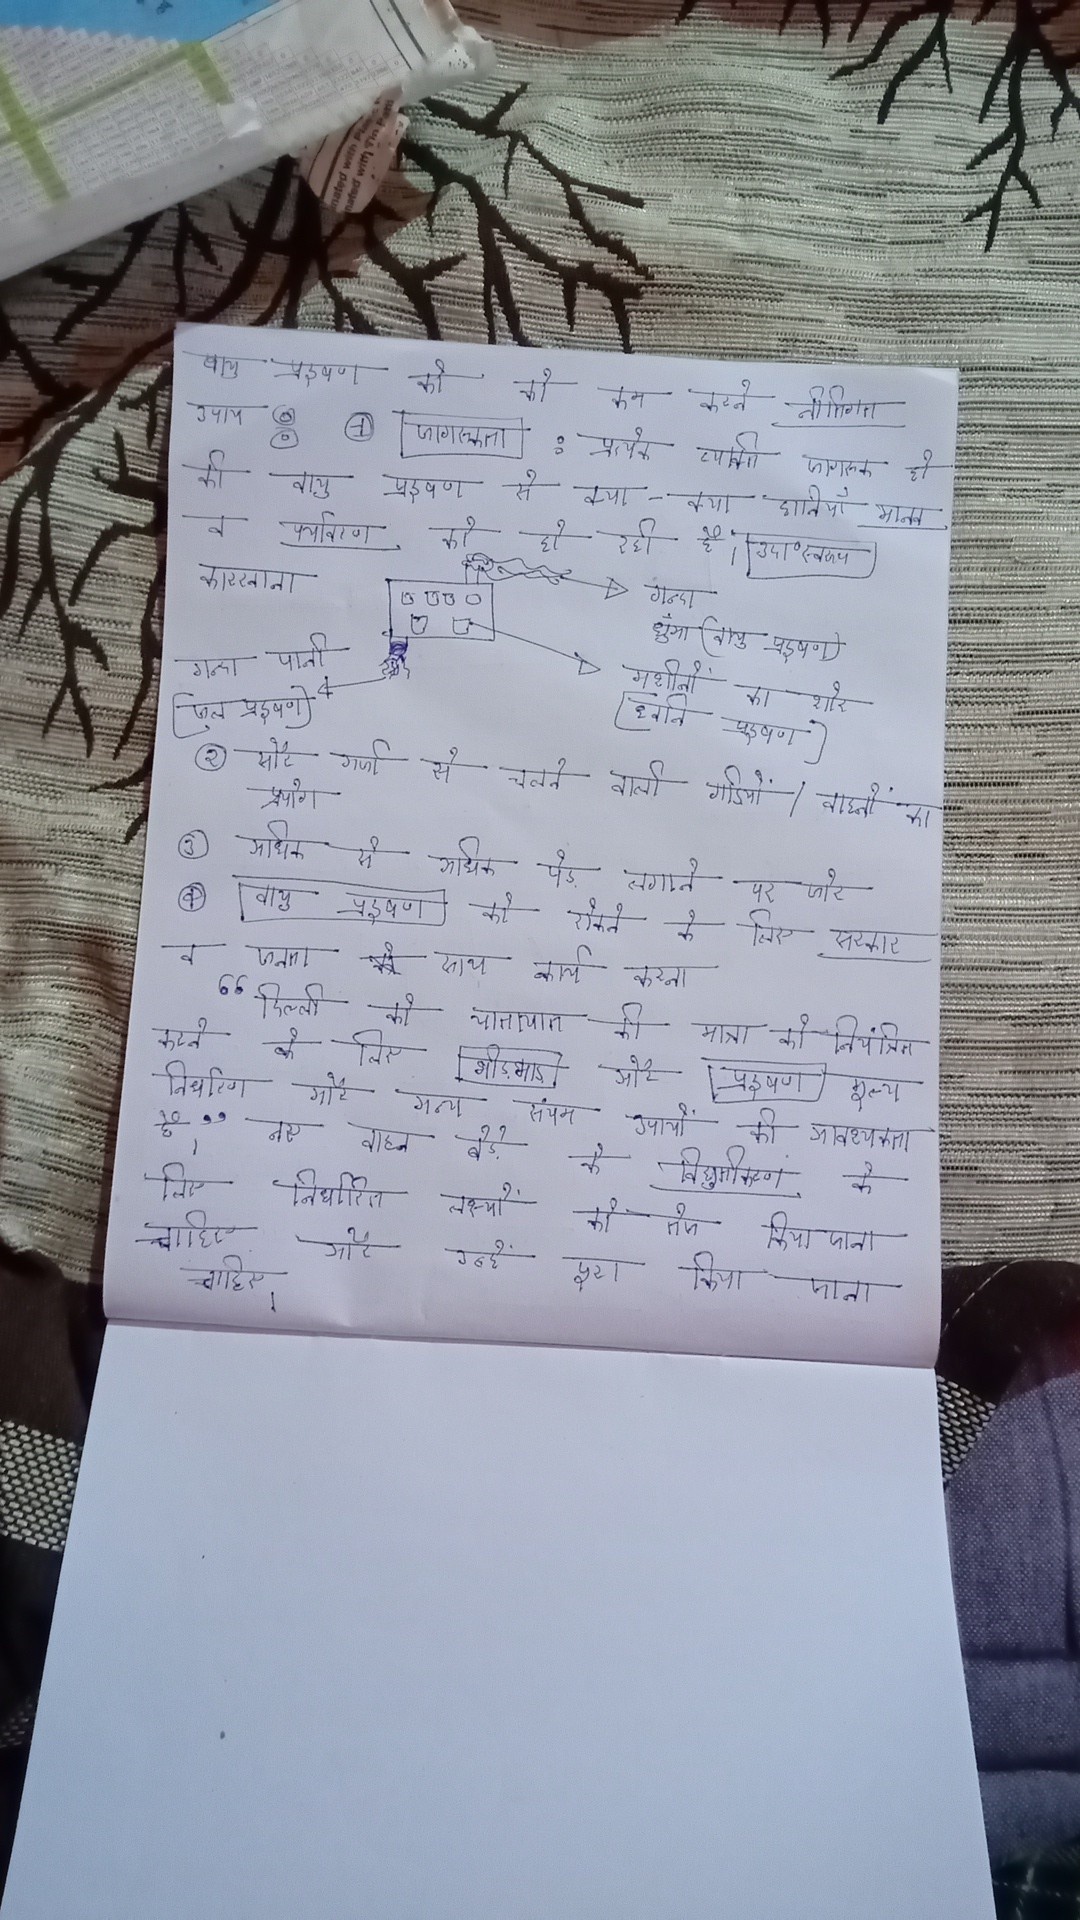 वायु प्रदूषण को को कम करने नीतिगत
उपाय : ① जागरूकता : प्रत्येक व्यक्ति जागरूक हो
की वायु प्रदूषण से क्या-क्या हानियाँ मानव
व पर्यावरण को हो रही है। उदा० स्वरूप
कारखाना
गन्दा
धुँआ (वायु प्रदूषण)
गन्दा पानी
(जल प्रदूषण)
मशीनों का शोर
(ध्वनि प्रदूषण)
② सौर ऊर्जा से चलने वाली गाडियों / वाहनों का
प्रयोग
③ अधिक से अधिक पेड़ लगाने पर जोर
④ वायु प्रदूषण को रोकने के लिए सरकार
व जनता साथ कार्य करना
“ दिल्ली को यातायात की मात्रा को नियंत्रित
करने के लिए भीड़भाड़ और प्रदूषण मूल्य
निर्धारण और अन्य संयम उपायों की आवश्यकता
है।” नए वाहन बेड़े के विद्युतीकरण के
लिए निर्धारित लक्ष्यों को तेज किया जाना
चाहिए और उन्हें पूरा किया जाना
चाहिए।
nated with Pl
nated with Tin Patti